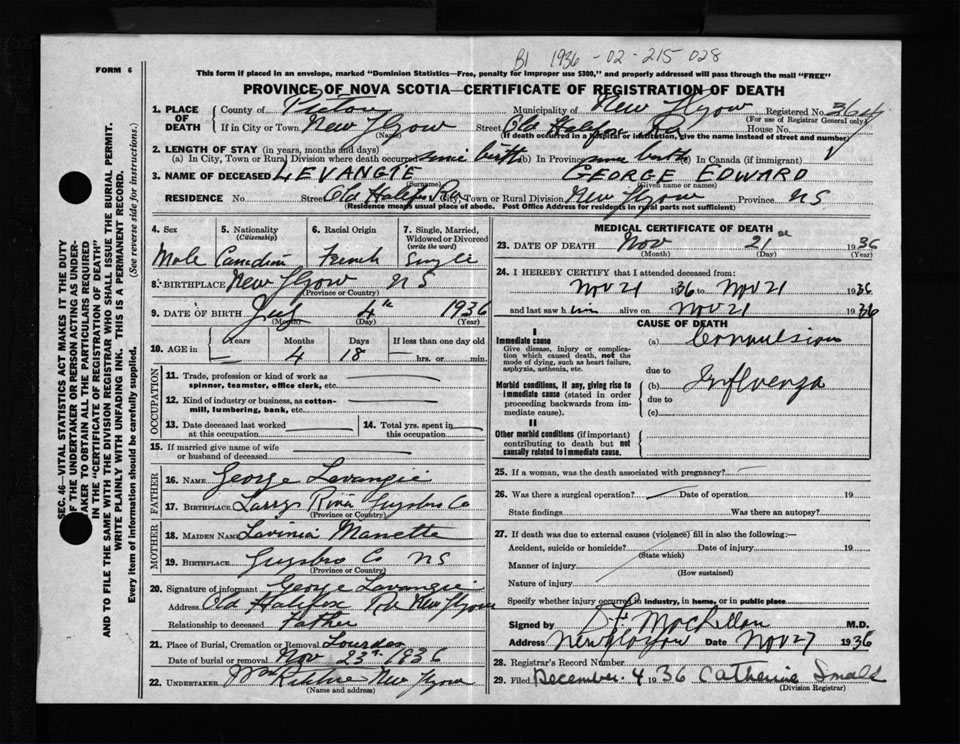 B1 1936-02-215 028
FORM 6
This form if placed in an envelope, marked "Dominion Statistics—Free, penalty for improper use $300," and properly addressed will pass through the mail "FREE"
PROVINCE OF NOVA SCOTIA—CERTIFICATE OF REGISTRATION OF DEATH
1. PLACE OF DEATH County of Pictou Municipality of New Glgow Registered No. 364
(For use of Registrar General only)
If in City or Town New Glgow Street Old Halifax Rd House No.
(Name) (If death occurred in a hospital or institution, give the name instead of street and number)
2. LENGTH OF STAY (in years, months and days)
(a) In City, Town or Rural Division where death occurred since birth (b) In Province since birth (c) In Canada (if immigrant)
3. NAME OF DECEASED LEVANGIE GEORGE EDWARD
(Surname) (Given name or names)
RESIDENCE No. Street Old Halifax Rd City, Town or Rural Division New Glgow Province NS
(Residence means usual place of abode. Post Office Address for residents in rural parts not sufficient)
4. Sex 5. Nationality (Citizenship) 6. Racial Origin 7. Single, Married, Widowed or Divorced (write the word)
Male Canadian French Single
8. BIRTHPLACE New Glgow NS
(Province or Country)
9. DATE OF BIRTH July 4th 1936
(Month) (Day) (Year)
10. AGE in Years Months Days If less than one day old
4 18 hrs. or min.
OCCUPATION
11. Trade, profession or kind of work as spinner, teamster, office clerk, etc.
12. Kind of industry or business, as cotton-mill, lumbering, bank, etc.
13. Date deceased last worked at this occupation 14. Total yrs. spent in this occupation
15. If married give name of wife or husband of deceased
FATHER
16. NAME George Levangie
17. BIRTHPLACE Larrys River Guysbro Co
(Province or Country)
MOTHER
18. MAIDEN NAME Lavinia Manette
19. BIRTHPLACE Guysbro Co NS
(Province or Country)
20. Signature of informant George Levangie
Address Old Halifax Rd New Glgow
Relationship to deceased Father
21. Place of Burial, Cremation or Removal Lourdes
Date of burial or removal Nov 23rd 1936
22. UNDERTAKER New Glgow
(Name and address)
MEDICAL CERTIFICATE OF DEATH
23. DATE OF DEATH Nov 21st 1936
(Month) (Day) (Year)
24. I HEREBY CERTIFY that I attended deceased from:
Nov 21 1936 to Nov 21 1936
and last saw him alive on Nov 21 1936
CAUSE OF DEATH
I
Immediate cause (a) Convulsion
Give disease, injury or complication which caused death, not the mode of dying, such as heart failure, asphyxia, asthenia, etc.
due to
Morbid conditions, if any, giving rise to immediate cause (stated in order proceeding backwards from immediate cause). (b) Influenza
due to
(c)
II
Other morbid conditions (if important) contributing to death but not causally related to immediate cause.
25. If a woman, was the death associated with pregnancy?
26. Was there a surgical operation? Date of operation 19
State findings Was there an autopsy?
27. If death was due to external causes (violence) fill in also the following:—
Accident, suicide or homicide? Date of injury 19
(State which)
Manner of injury
(How sustained)
Nature of injury
Specify whether injury occurred in industry, in home, or in public place
Signed by M.D.
Address New Glasgow Date Nov 27 1936
28. Registrar's Record Number
29. Filed December 4 1936 Catherine Smals
(Division Registrar)
SEC. 46—VITAL STATISTICS ACT MAKES IT THE DUTY
OF THE UNDERTAKER OR PERSON ACTING AS UNDER-
TAKER TO OBTAIN ALL THE PARTICULARS REQUIRED
IN THE "CERTIFICATE OF REGISTRATION OF DEATH"
AND TO FILE THE SAME WITH THE DIVISION REGISTRAR WHO SHALL ISSUE THE BURIAL PERMIT.
WRITE PLAINLY WITH UNFADING INK. THIS IS A PERMANENT RECORD.
Every item of information should be carefully supplied. (See reverse side for instructions.)